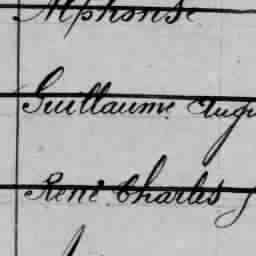 Alphonse
Guillaume Augu
René Charles